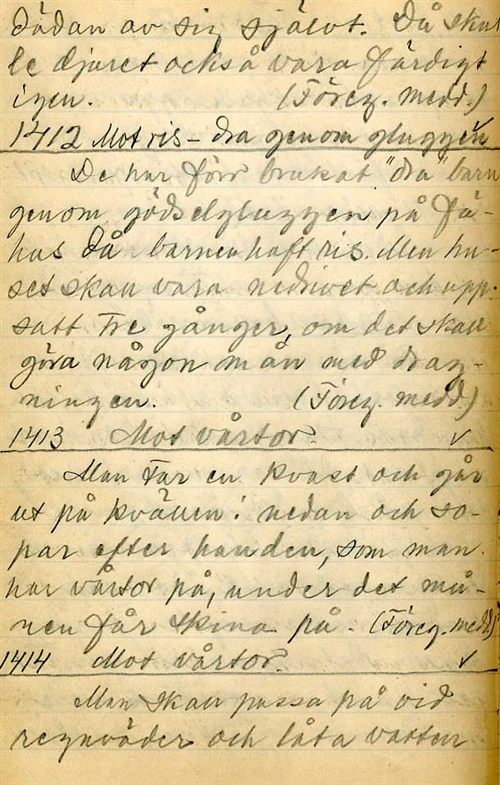 dädan av sig självt. Då skul
le djuret också vara färdigt
igen. (Föreg. medd.)
1412 Mot ris – dra genom gluggen
De har förr brukat "dra" barn
genom gödselgluggen på fä-
hus då barnen haft ris. Men hu-
set skall vara nedrivet och upp-
satt tre gånger, om det skall
göra någon mån med drag-
ningen. (Föreg. medd.)
1413 Mot vårtor. ✓
Man tar en kvast och går
ut på kvällen i nedan och so-
par efter handen, som man
har vårtor på, under det må-
nen får skina på. (Föreg. medd)
1414 Mot vårtor. ✓
Man skall passa på vid
regnväder och låta vatten